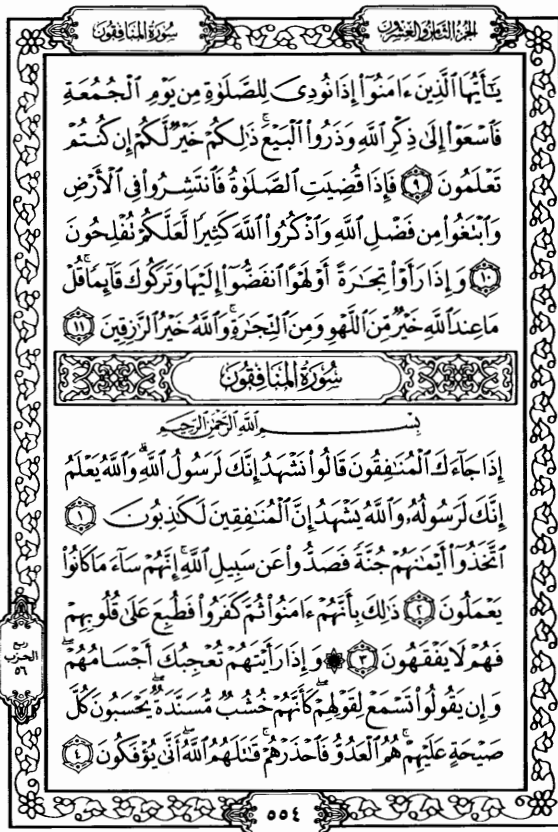 الجزء الثامن والعشرون
سورة المنافقون
يَٰٓأَيُّهَا ٱلَّذِينَ ءَامَنُوٓا۟ إِذَا نُودِىَ لِلصَّلَوٰةِ مِن يَوْمِ ٱلْجُمُعَةِ
فَٱسْعَوْا۟ إِلَىٰ ذِكْرِ ٱللَّهِ وَذَرُوا۟ ٱلْبَيْعَ ۚ ذَٰلِكُمْ خَيْرٌ لَّكُمْ إِن كُنتُمْ
تَعْلَمُونَ ٩ فَإِذَا قُضِيَتِ ٱلصَّلَوٰةُ فَٱنتَشِرُوا۟ فِى ٱلْأَرْضِ
وَٱبْتَغُوا۟ مِن فَضْلِ ٱللَّهِ وَٱذْكُرُوا۟ ٱللَّهَ كَثِيرًا لَّعَلَّكُمْ تُفْلِحُونَ
١٠ وَإِذَا رَأَوْا۟ تِجَٰرَةً أَوْ لَهْوًا ٱنفَضُّوٓا۟ إِلَيْهَا وَتَرَكُوكَ قَآئِمًا ۚ قُلْ
مَا عِندَ ٱللَّهِ خَيْرٌ مِّنَ ٱللَّهْوِ وَمِنَ ٱلتِّجَٰرَةِ ۚ وَٱللَّهُ خَيْرُ ٱلرَّٰزِقِينَ ١١
سُورَةُ المنَافِقُون
بِسْمِ ٱللَّهِ ٱلرَّحْمَٰنِ ٱلرَّحِيمِ
إِذَا جَآءَكَ ٱلْمُنَٰفِقُونَ قَالُوا۟ نَشْهَدُ إِنَّكَ لَرَسُولُ ٱللَّهِ ۗ وَٱللَّهُ يَعْلَمُ
إِنَّكَ لَرَسُولُهُۥ وَٱللَّهُ يَشْهَدُ إِنَّ ٱلْمُنَٰفِقِينَ لَكَٰذِبُونَ ١
ٱتَّخَذُوٓا۟ أَيْمَٰنَهُمْ جُنَّةً فَصَدُّوا۟ عَن سَبِيلِ ٱللَّهِ ۚ إِنَّهُمْ سَآءَ مَا كَانُوا۟
يَعْمَلُونَ ٢ ذَٰلِكَ بِأَنَّهُمْ ءَامَنُوا۟ ثُمَّ كَفَرُوا۟ فَطُبِعَ عَلَىٰ قُلُوبِهِمْ
فَهُمْ لَا يَفْقَهُونَ ٣ ۞ وَإِذَا رَأَيْتَهُمْ تُعْجِبُكَ أَجْسَامُهُمْ ۖ
وَإِن يَقُولُوا۟ تَسْمَعْ لِقَوْلِهِمْ ۖ كَأَنَّهُمْ خُشُبٌ مُّسَنَّدَةٌ ۖ يَحْسَبُونَ كُلَّ
صَيْحَةٍ عَلَيْهِمْ ۚ هُمُ ٱلْعَدُوُّ فَٱحْذَرْهُمْ ۚ قَٰتَلَهُمُ ٱللَّهُ ۖ أَنَّىٰ يُؤْفَكُونَ ٤
ربع
الحزب
٥٦
٥٥٤